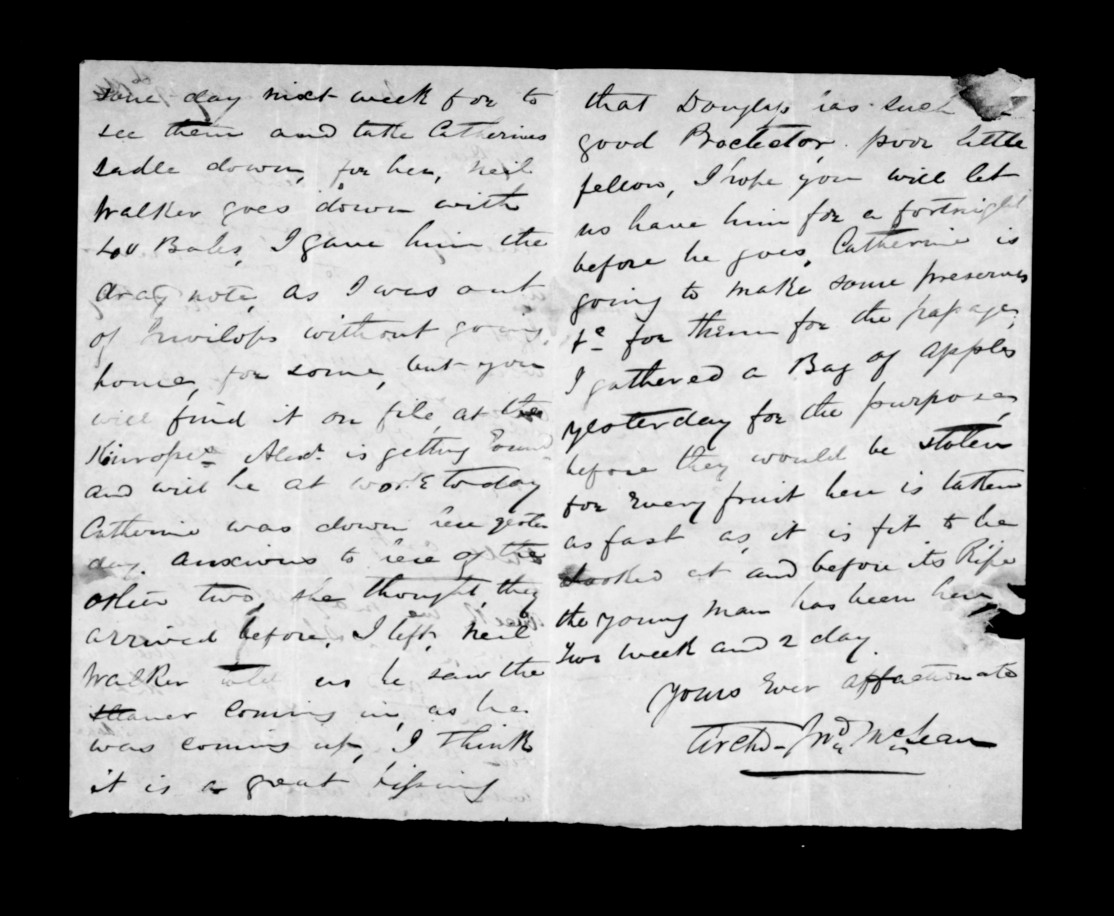 some day next week for to
see them and take Catherines
sadle down, for her, neil
Walker goes down with
40 Bales, I gave him the
dray note, as I was out
of Invilops without going
home, for some, but you
will find it on file, at the
Alexr. is getting Round
and will be at work to day
Catherine was down here yester
day. anxious to here of the
other two, she thought, they
arrived before, I left, neil
Walker told us he saw the
steamer coming in, as he
was coming up, I think
it is a great blissing
that Douglas has such
good Protector, poor little
fellow, I hope you will let
us have him for a fortnight
before he goes, Catherine is
going to make some preserves
&c for them for the passage,
I gathered a Bag of apples
yesterday for the purpose,
before they would be stolen
for Every fruit here is tatten
as fast as it is fit to be
looked at and before its Ripe
the young man has been here
Two week and 2 day.
Yours Ever affactionate
Archd. Jnd. McLean